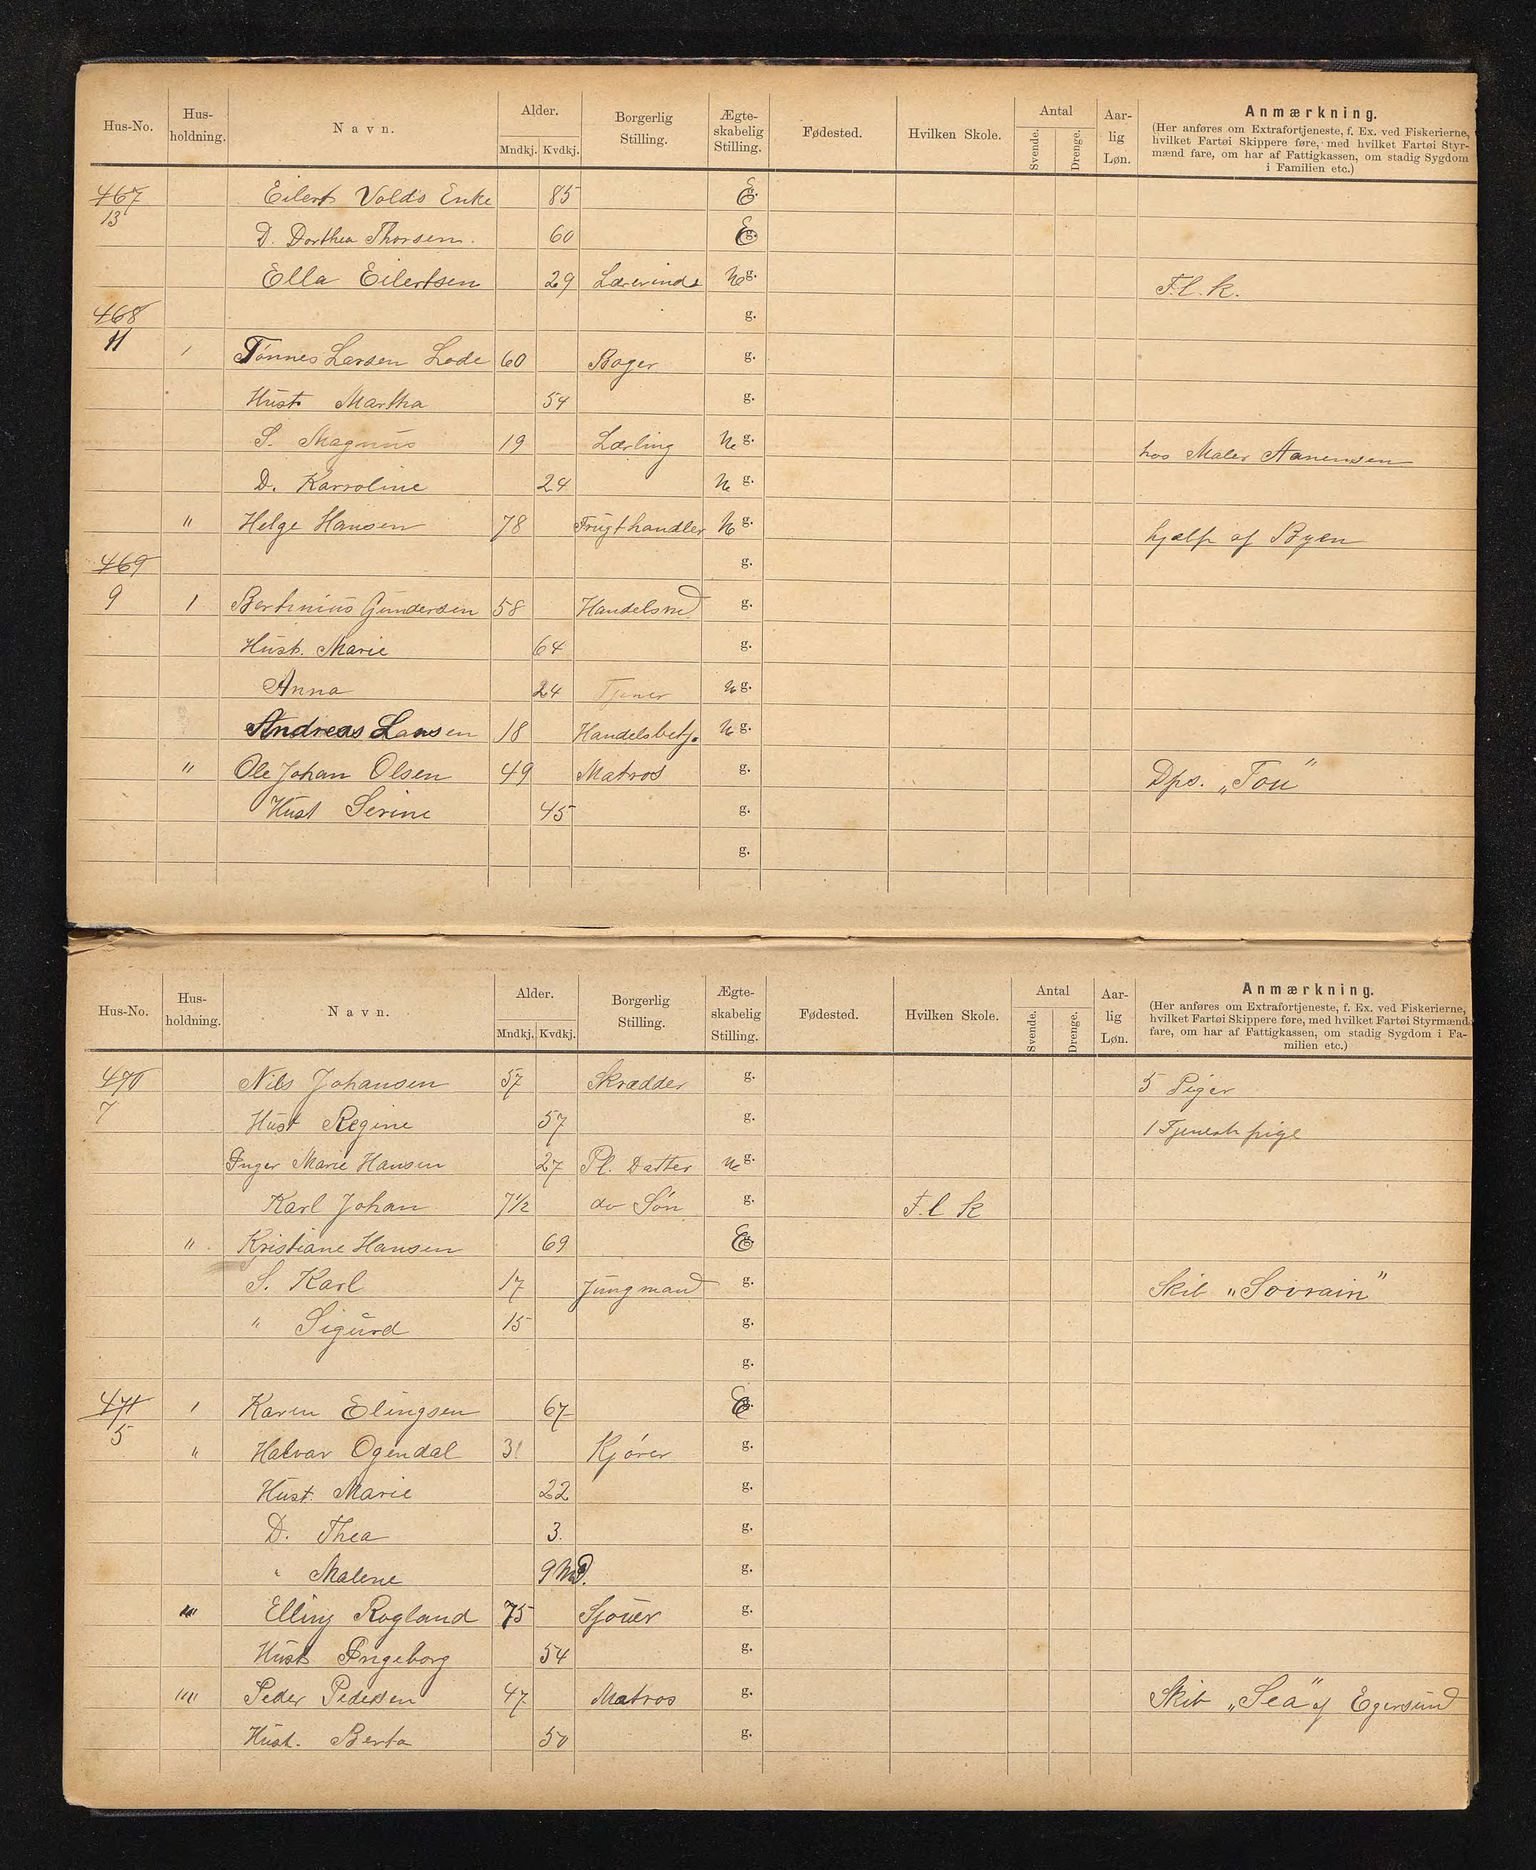 Hus-No. Hus-holdning. Navn. Alder. Mndkj. Kvdkj. Borgerlig Stilling. Ægte-skabelig Stilling. Fødested. Hvilken Skole. Antal Svende. Drenge. Aar-lig Løn. Anmærkning.
(Her anføres om Extrafortjeneste, f. Ex. ved Fiskerierne,
hvilket Fartøi Skippere føre, med hvilket Fartøi Styr-
mænd fare, om har af Fattigkassen, om stadig Sygdom
i Familien etc.)
467 Eilert Volds Enke 85 E g.
13 D. Dorthea Thorsen. 60 E g.
Ella Eilertsen 29 Lærerinde N g. F.l.k.
468 g.
11 ' Tønnes Larsen Lode 60 Bager g.
Hust. Martha 54 g.
S. Magnus 19 Lærling N g. hos Maler Aanensen
D. Karroline 24 N g.
" Helge Hansen 78 Frugthandler N g. hjælp af Byen
469 g.
9 1 Bertinius Gundersen 58 Handelsmd g.
Hust. Marie 64 g.
Anna 24 Tjener N g.
Andreas Larsen 18 Handelsbetj. N g.
" Ole Johan Olsen 49 Matros g. Dps. „Tou"
Hust Serine 45 g.
g.
Hus-No. Hus-holdning. Navn. Alder. Mndkj. Kvdkj. Borgerlig Stilling. Ægte-skabelig Stilling. Fødested. Hvilken Skole. Antal Svende. Drenge. Aar-lig Løn. Anmærkning.
(Her anføres om Extrafortjeneste, f. Ex. ved Fiskerierne,
hvilket Fartøi Skippere føre, med hvilket Fartøi Styrmænd
fare, om har af Fattigkassen, om stadig Sygdom i Fa-
milien etc.)
470 Nils Johansen 57 Skrædder g. 5 Piger
7 Hust Regine 57 g. 1 Tjenestepige
Inger Marie Hansen 27 Pl. Datter N g.
Karl Johan 7 1/2 do Søn g. F.l k
" Kristiane Hansen 69 E g.
S. Karl 17 Jungmand g. Skib „Sovrain"
" Sigurd 15 g.
g.
471 ' Karen Elingsen 67 E g.
5 " Halvar Ogendal 31 Kjører g.
Hust. Marie 22 g.
D. Thea 3. g.
" Malene 9 Md. g.
"' Elling Rogland 75 Sjouer g.
Hust Ingeborg 54 g.
"" Peder Pedersen 47 Matros g. Skib „Sea" af Egersund
Hust. Berta 50 g.